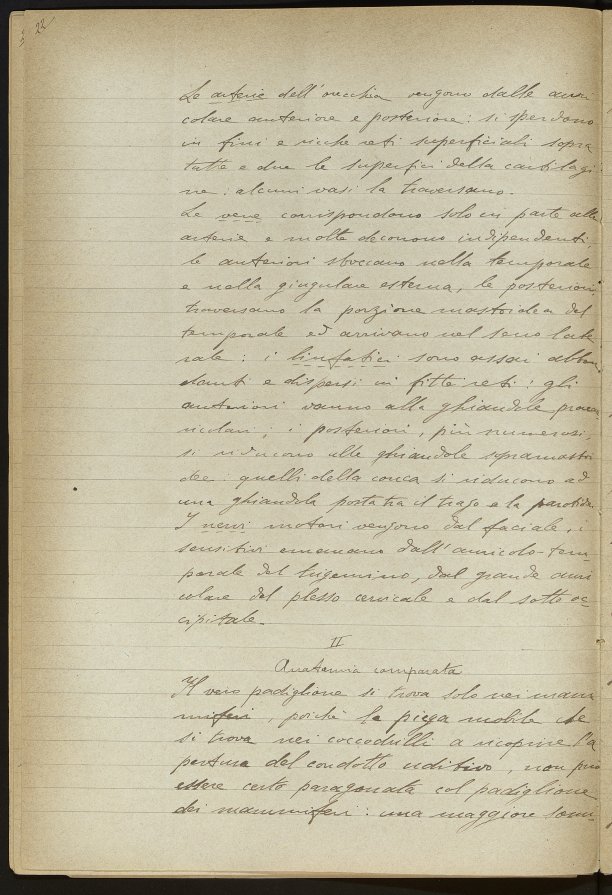 22
Le arterie dell'orecchia vengono dalle auri
colare anteriore e posteriore: si spendono
in fini e ricche reti superficiali sopra
tutte e due le superfici della cartilagi
ne: alcuni vasi la traversano.
Le vene corrispondono solo in parte alle
arterie e molte decorrono indipendenti,
le anteriori sboccano nella temporale
e nella giugulare esterna, le posteriori,
traversano la porzione mastoidea del
temporale ed arrivano nel seno late
rale: i linfatici sono assai abbon
danti e dispersi in fitte reti: gli
anteriori vanno alla ghiandole preau
ricolari; i posteriori, più numerosi,
si riducono alle ghiandole sopramastoi
dee: quelli della conca si riducono ad
una ghiandola posta tra il trago e la parotide.
I nervi motori vengono dal faciale, i
sensitivi emanano dall'auricolo-tem-
porale del trigemino, dal grande auri
colare del plesso cervicale e dal sotto oc-
cipitale.
II
Anatomia comparata
Il vero padiglione si trova solo nei mam
miferi, poichè la piega mobile che
si trova nei coccodrilli a ricoprire l'a
pertura del condotto uditivo, non può
essere certo paragonata col padiglione
dei mammiferi: una maggiore somi-